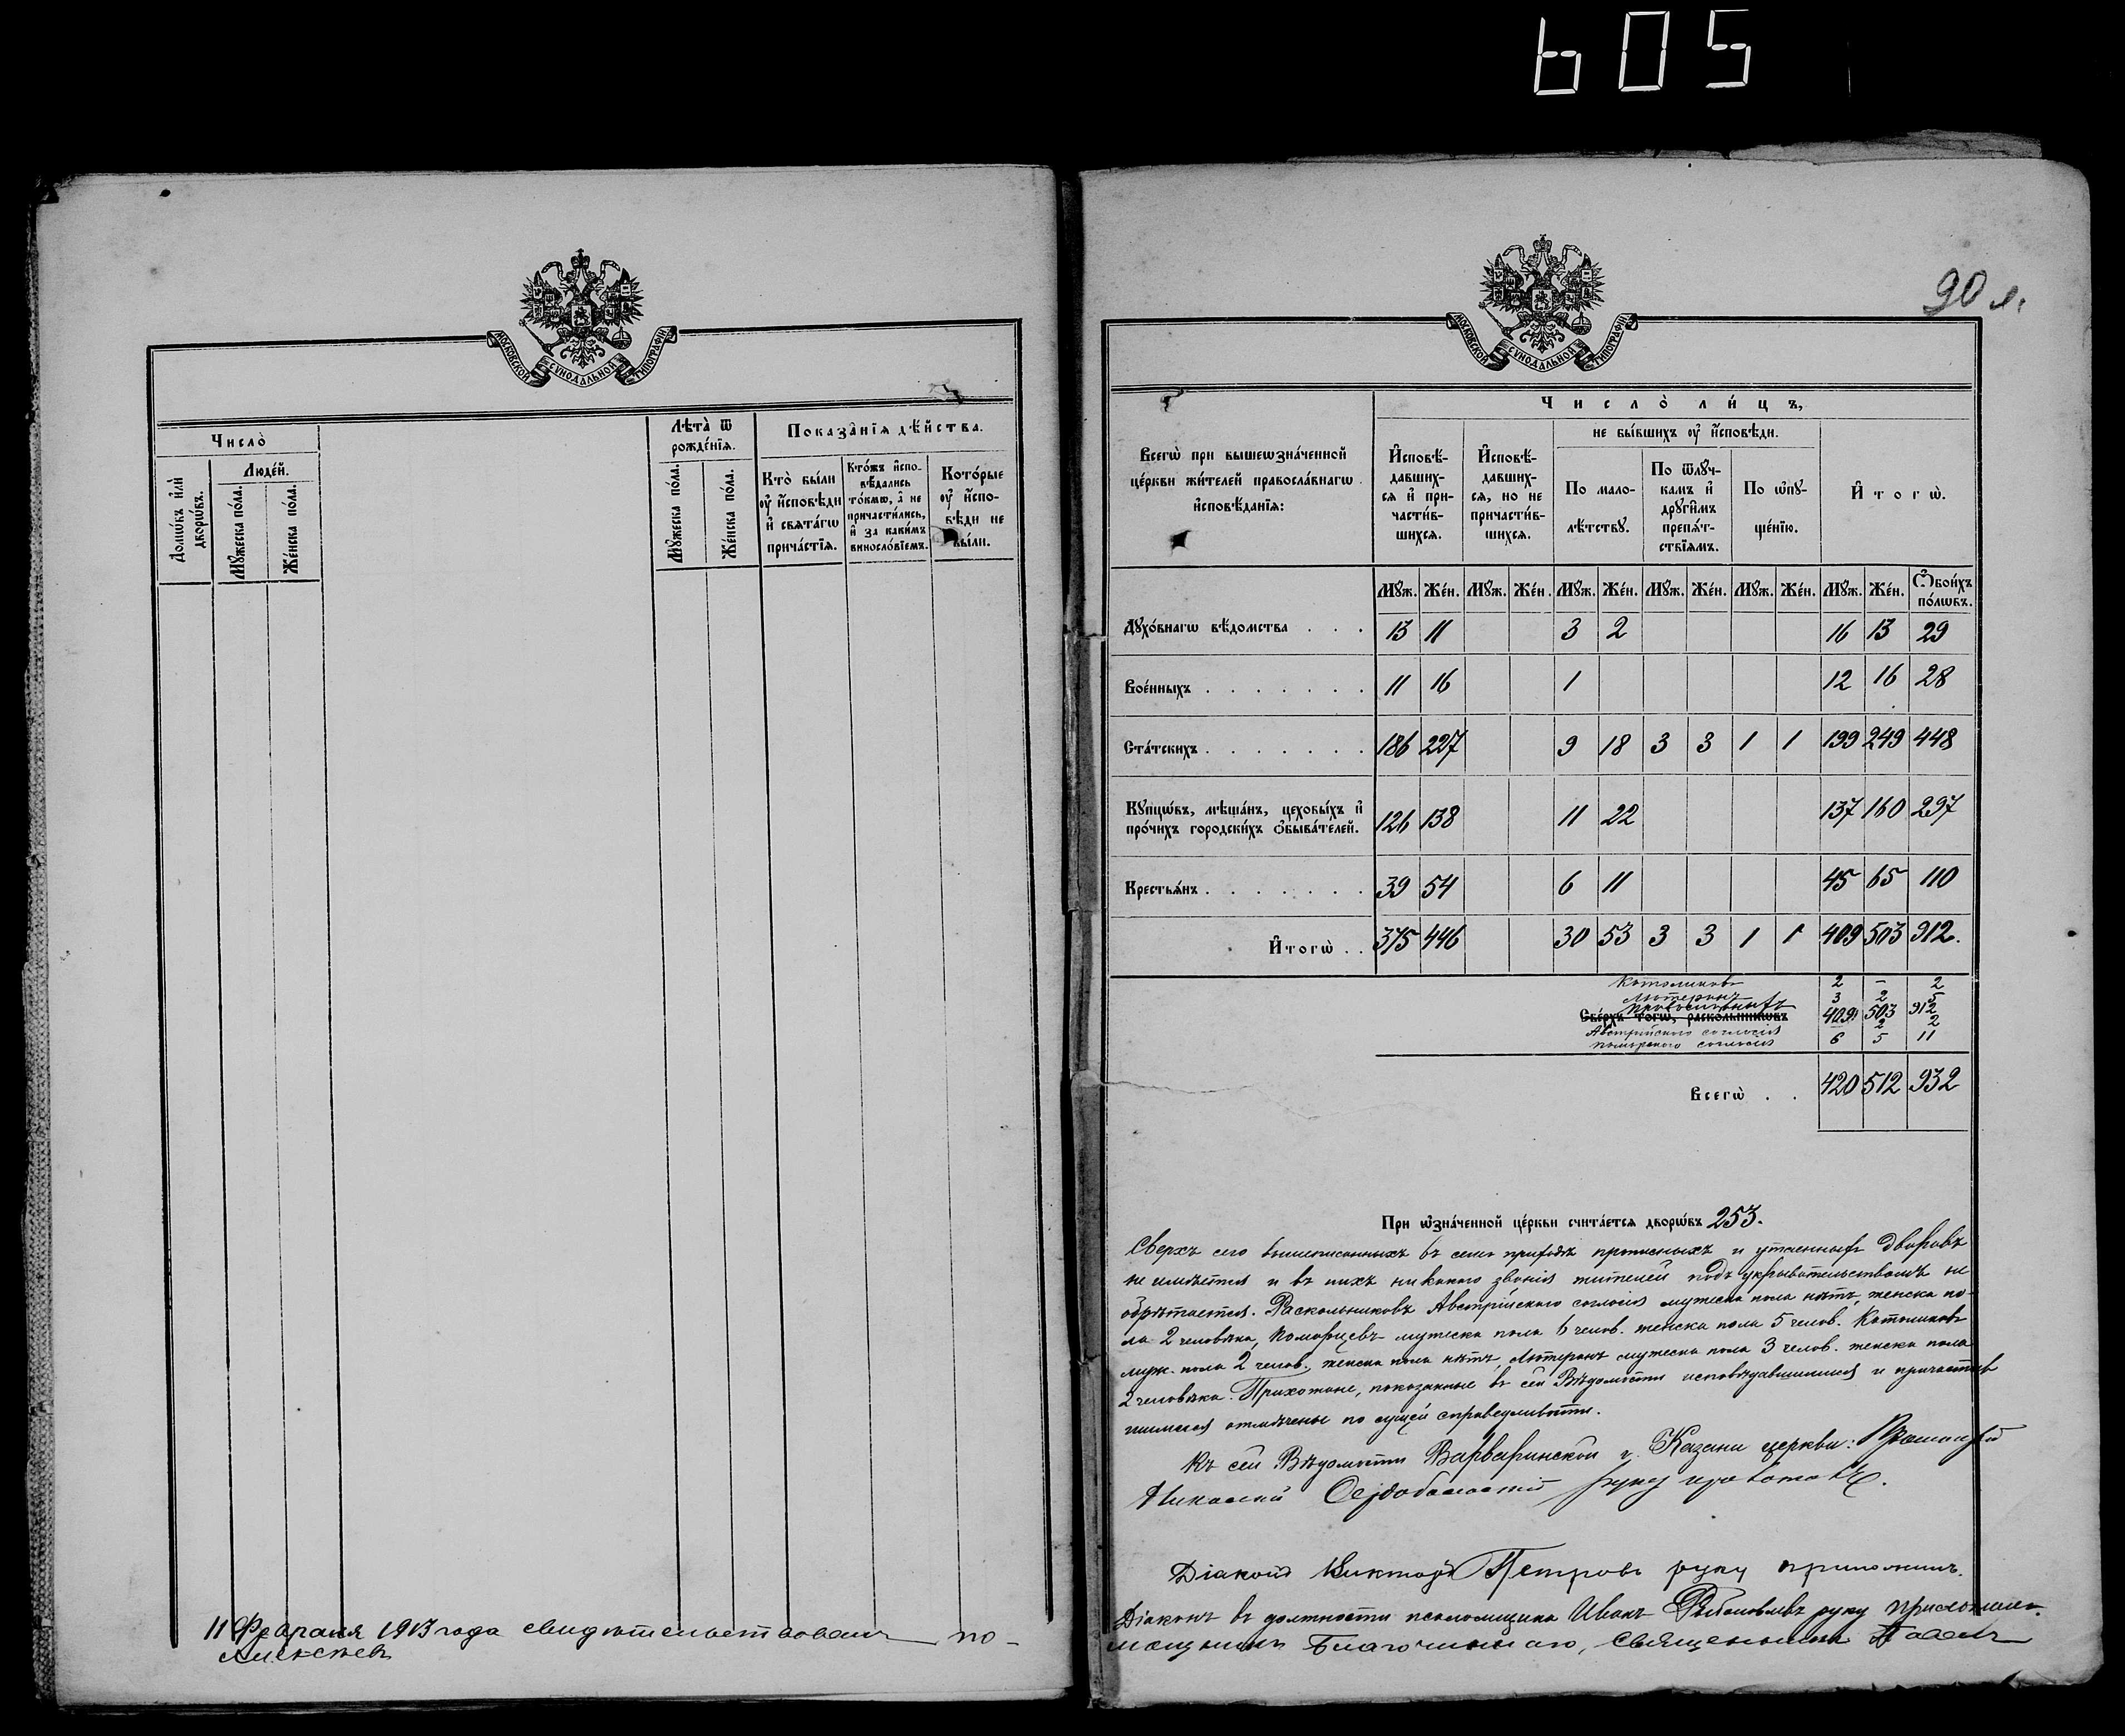 605
МОСКОВСКОЙ СѴНОДАЛЬНОЙ ТИПОГРАФІИ
Число̀
Домѡ́въ и҆лѝ дворѡ́въ.
Люде́й.
Мꙋ́жеска по́ла.
Же́нска по́ла.
Лѣ́та ѿ рожде́нїѧ.
Мꙋ́жеска по́ла.
Же́нска по́ла.
Показа̑нїѧ дѣ́йства.
Кто̀ бы́ли оу҆ и҆сповѣди и҆ свѧта́гѡ прича́стїѧ.
Кто́жъ и҆сповѣдались то́кмѡ, а҆ не причасти́лись, и҆ за каки́мъ винословіемъ.
Кото́рые оу҆ и҆сповѣди не бы́ли.
11 Февраля 1913 года свидѣтельствовалъ по-
Алексѣевъ
90 л.
МОСКОВСКОЙ СѴНОДАЛЬНОЙ ТИПОГРАФІИ
Всегѡ̀ при вышеѡзна́ченной це́ркви жи́телей правосла́внагѡ и҆сповѣ́данїѧ:
Число̀ ли́цъ,
И҆сповѣ́давшихсѧ и҆ причасти́вшихсѧ.
И҆сповѣ́давшихсѧ, но не причасти́вшихсѧ.
не бы́вшихъ оу҆ и҆сповѣди.
По малолѣ́тствꙋ.
По ѿлꙋ́чкамъ и҆ дрꙋги̑мъ препѧ́тствїѧмъ.
По ѡ҆пꙋще́нїю.
И҆тогѡ̀.
Мꙋж. Же́н. Мꙋж. Же́н. Мꙋж. Же́н. Мꙋж. Же́н. Мꙋж. Же́н. Мꙋж. Же́н. Ѻ҆бои́хъ по́лѡвъ.
Дꙋхо́внагѡ вѣ́домства . . . 13 11 3 2 16 13 29
Вое́нныхъ . . . . . . . 11 16 1 12 16 28
Ста́тскихъ . . . . . . . 186 227 9 18 3 3 1 1 199 249 448
Кꙋпцѡ́въ, мѣща́нъ, цеховы́хъ и҆ про́чихъ городски́хъ ѻ҆быва́телей. 126 138 11 22 137 160 297
Крестьѧ́нъ . . . . . . . 39 54 6 11 45 65 110
И҆тогѡ̀ . . 375 446 30 53 3 3 1 1 409 503 912.
Католиковъ 2 - 2
Лютеранъ 3 2 5
Православныхъ 409 503 912
Све́рхъ тогѡ̀, раско́льникѡвъ
Австрійскаго согласія 2 2
Поморскаго согласія 6 5 11
Всегѡ̀ . . 420 512 932
При ѡ҆зна́ченной це́ркви счита́етсѧ дворѡ́въ 253.
Сверхъ сего вышеписанныхъ въ семъ приходѣ прописныхъ и утаенныхъ дворовъ
не имѣется и въ нихъ никакого званія жителей подъ укрывательствомъ не
обрѣтается. Раскольниковъ Австрійскаго согласія мужеска пола нѣтъ, женска по-
ла 2 человѣка, Поморцевъ мужеска пола 6 челов. женска пола 5 челов. Католиковъ
муж. пола 2 челов., женска пола нѣтъ, Лютеранъ мужеска пола 3 челов. женска пола
2 человѣка. Прихожане, показанные въ сей Вѣдомости исповѣдавшимися и причастив
шимися отмѣчены по сущей справедливости.
Къ сей Вѣдомости Варваринской г. Казани церкви:
Николай руку приложилъ.
Діаконъ Викторъ Петровъ руку приложилъ.
Діаконъ въ должности псаломщика Иванъ руку приложилъ.
мощникъ Благочиннаго, Священникъ Павелъ